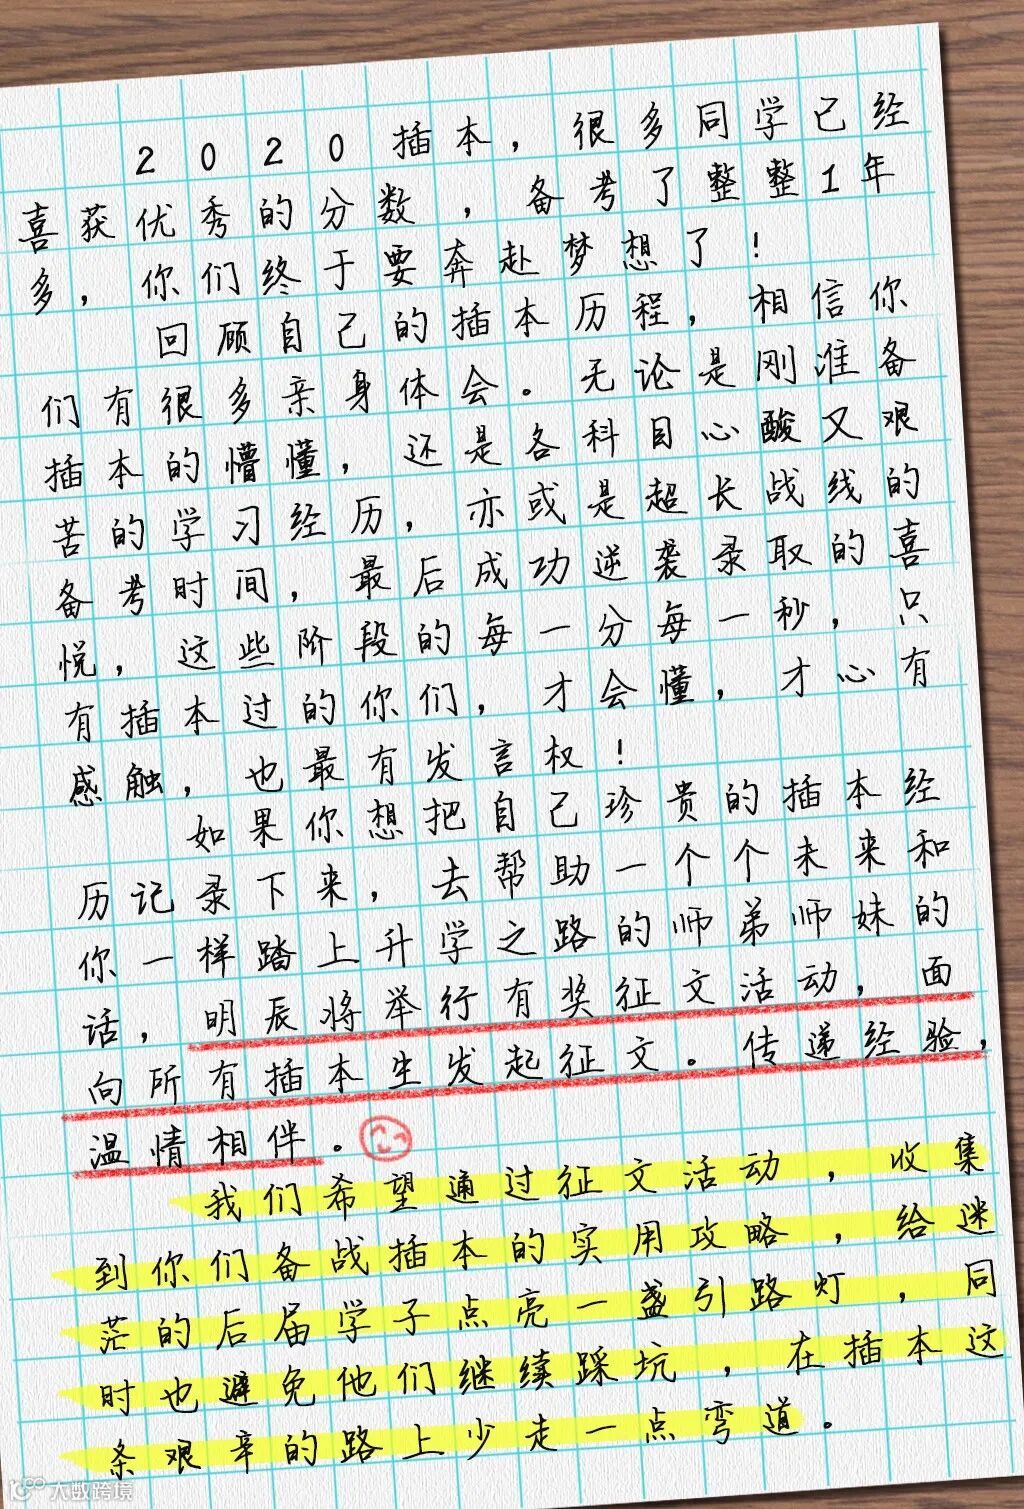 2020插本，很多同学已经
喜获优秀的分数，备考了整整1年
多，你们终于要奔赴梦想了！
回顾自己的插本历程，相信你
们有很多亲身体会。无论是刚准备
插本的懵懂，还是各科目心酸又艰
苦的学习经历，亦或是超长战线的
备考时间，最后成功逆袭录取的喜
悦，这些阶段的每一分每一秒，只
有插本过的你们，才会懂，才心有
感触，也最有发言权！
如果你想把自己珍贵的插本经
历记录下来，去帮助一个个未来和
你一样踏上升学之路的师弟师妹的
话，明辰将举行有奖征文活动，面
向所有插本生发起征文。传递经验，
温情相伴。
我们希望通过征文活动，收集
到你们备战插本的实用攻略，给迷
茫的后届学子点亮一盏引路灯，同
时也避免他们继续踩坑，在插本这
条艰辛的路上少走一点弯道。
大数跨境